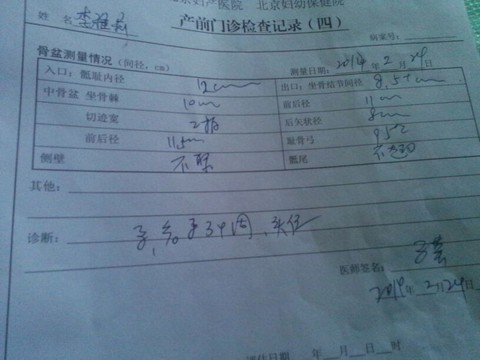 北京妇产医院 北京妇幼保健院
产前门诊检查记录（四）
姓名 李 病案号：
骨盆测量情况（间径，cm） 测量日期：2014年2月24日
入口：骶耻内径 12cm 出口：坐骨结节间径 8.5cm
中骨盆 坐骨棘 10cm 前后径 11cm
切迹宽 2指 后矢状径 8cm
前后径 11.5cm 耻骨弓 95°
侧壁 不 骶尾 不
其他：
诊断： 孕34周，头位
医师签名：
2014年2月24日
评估日期 年 月 日 时